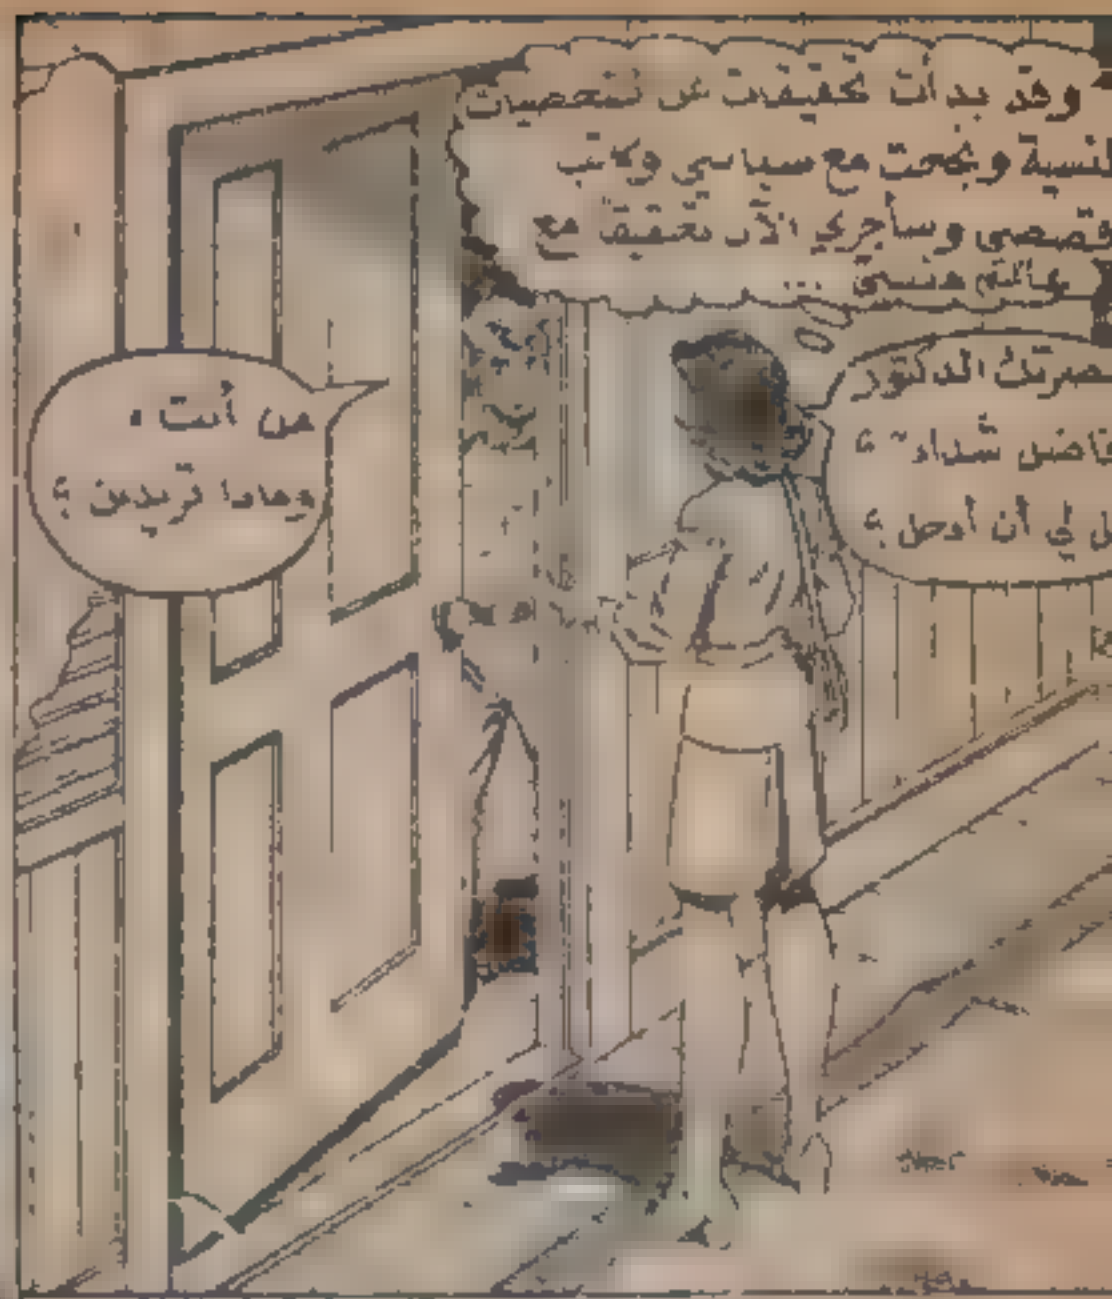 وقد بدأت تحقيقات عن شخصيات
ونجحت مع سياسي وكاتب
قصصي وسأجري الآن تحقيقا مع
عالم
حضرتك الدكتور
فاضل شداد ؟
لي أن أدخل ؟
من أنت ،
وماذا تريدين ؟